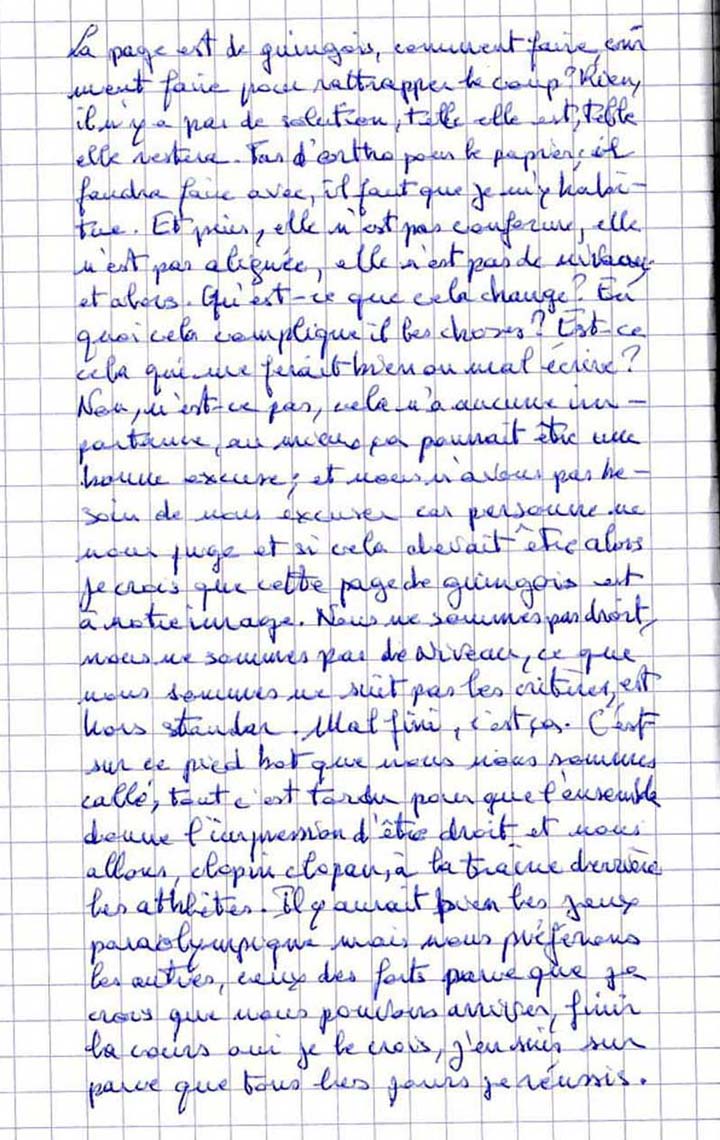 La page est de guingois, comment faire, com
ment faire pour rattrapper le coup? Rien,
il n'y a pas de solution, telle elle est, telle
elle restera. Pas d'ortho pour le papier, il
faudra faire avec, il faut que je m'y habi-
tue. Et puis, elle n'est pas conforme, elle
n'est pas alignée, elle n'est pas de niveau
et alors. Qu'est-ce que cela change? En
quoi cela complique il les choses? Est-ce
cela qui me ferait bien ou mal écrire?
Non, n'est-ce pas, cela n'a aucune im-
portance, au mieux ça pourrait être une
bonne excuse; et nous n'avons pas be-
soin de nous excuser car personne ne
nous juge et si cela devait être alors
je crois que cette page de guingois est
à notre image. Nous ne sommes pas droit,
nous ne sommes pas de niveau, ce que
nous sommes ne suit pas les critères, est
hors standar. Mal fini, c'est ça. C'est
sur ce pied bot que nous nous sommes
callé, tout c'est tordu pour que l'ensemble
donne l'impression d'être droit et nous
allons, clopin clopan, à la traine derrière
les athlètes. Il y aurait bien les jeux
paraolympique mais nous préférons
les autres, ceux des forts parce que je
crois que nous pouvons arriver, finir
la cours oui je le crois, j'en suis sur
parce que tous les jours je réussis.